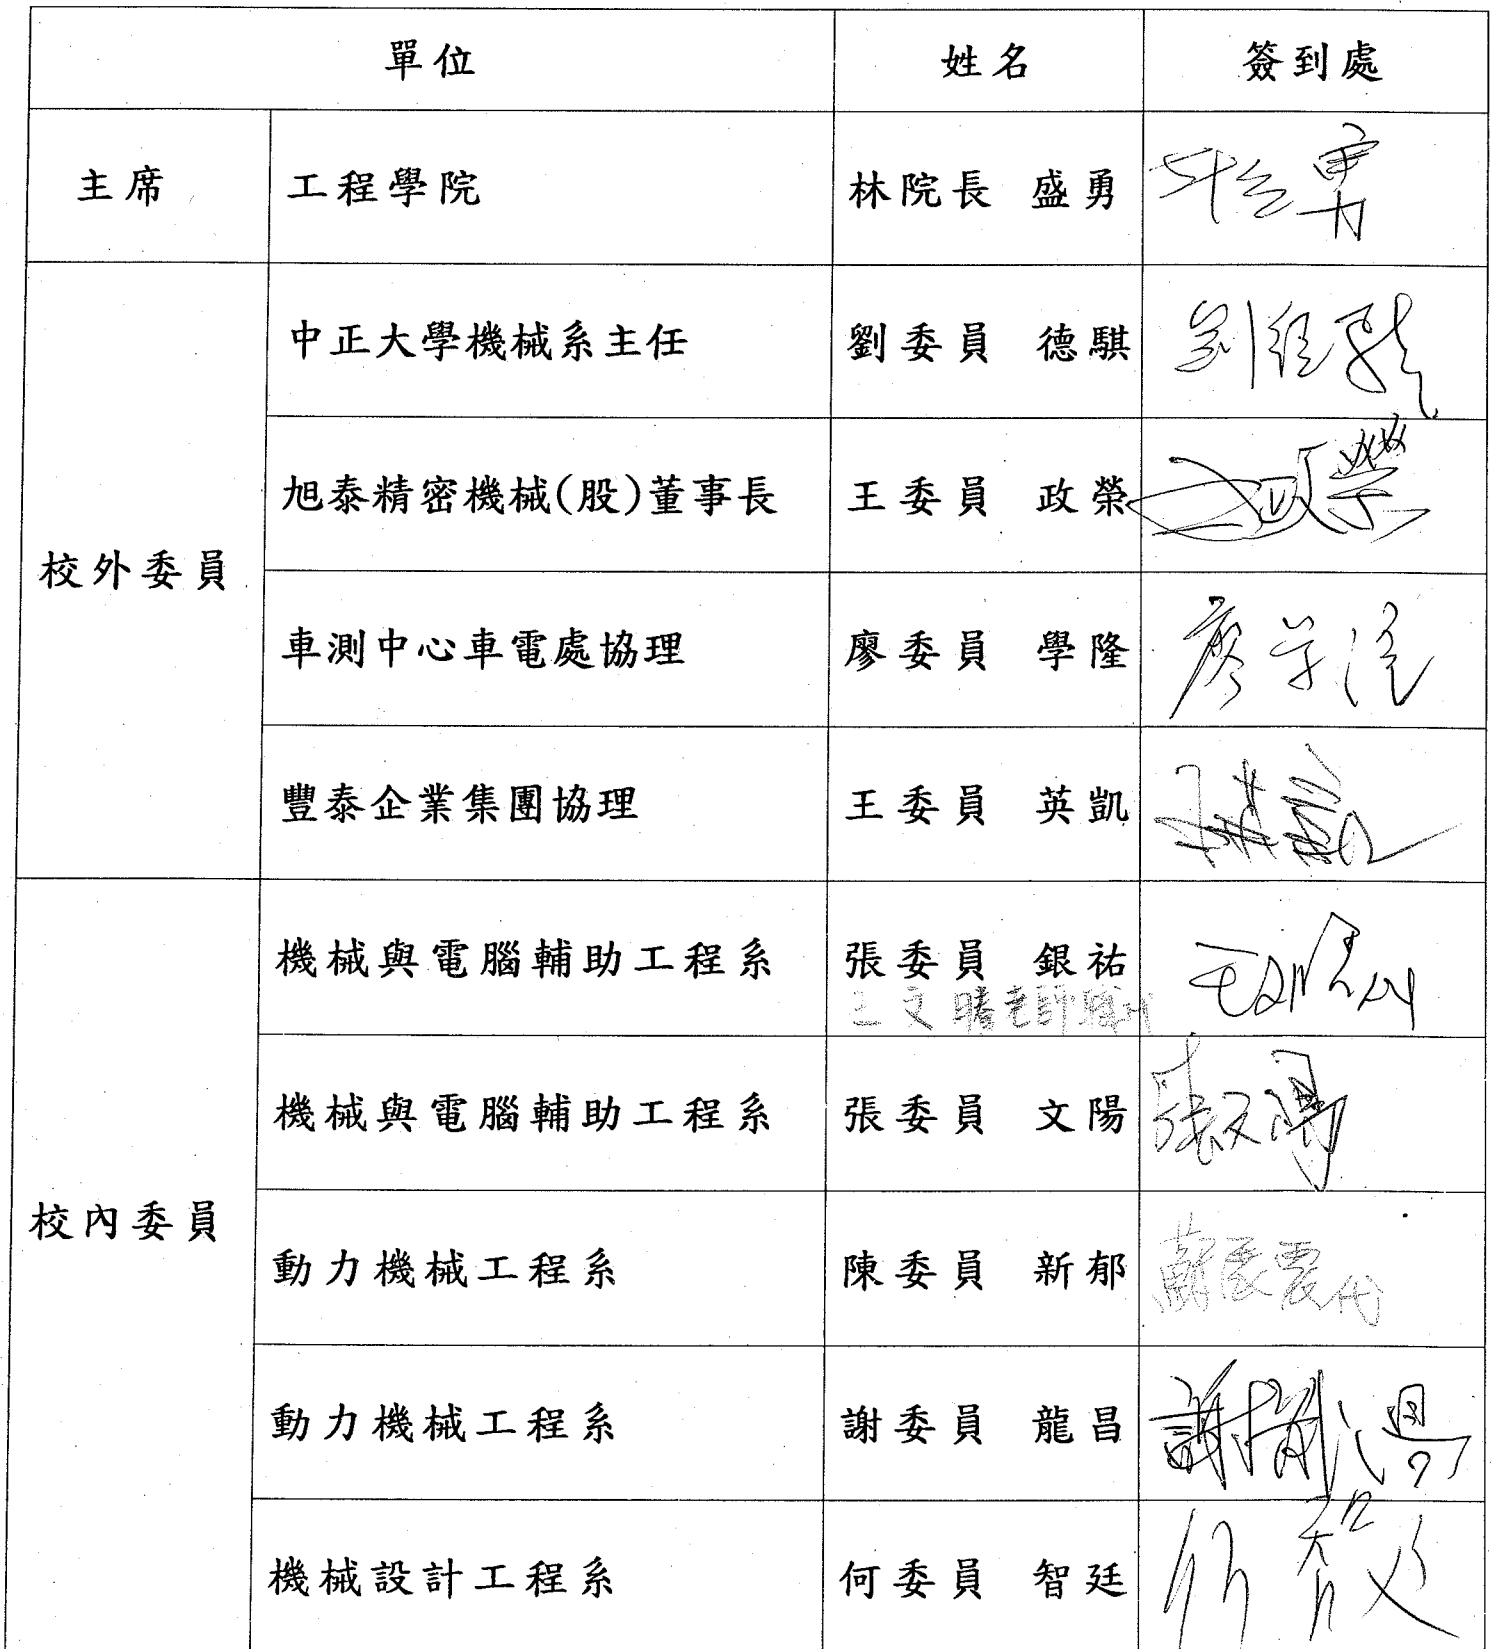 單位 姓名 簽到處
主席 工程學院 林院長 盛勇
中正大學機械系主任 劉委員 德騏 劉德騏
旭泰精密機械(股)董事長 王委員 政榮 王政榮
校外委員
車測中心車電處協理 廖委員 學隆 廖学隆
豐泰企業集團協理 王委員 英凱
機械與電腦輔助工程系 張委員 銀祐
王文騰老師職代
機械與電腦輔助工程系 張委員 文陽 張文陽
校內委員
動力機械工程系 陳委員 新郁 代
動力機械工程系 謝委員 龍昌
機械設計工程系 何委員 智廷 何智廷